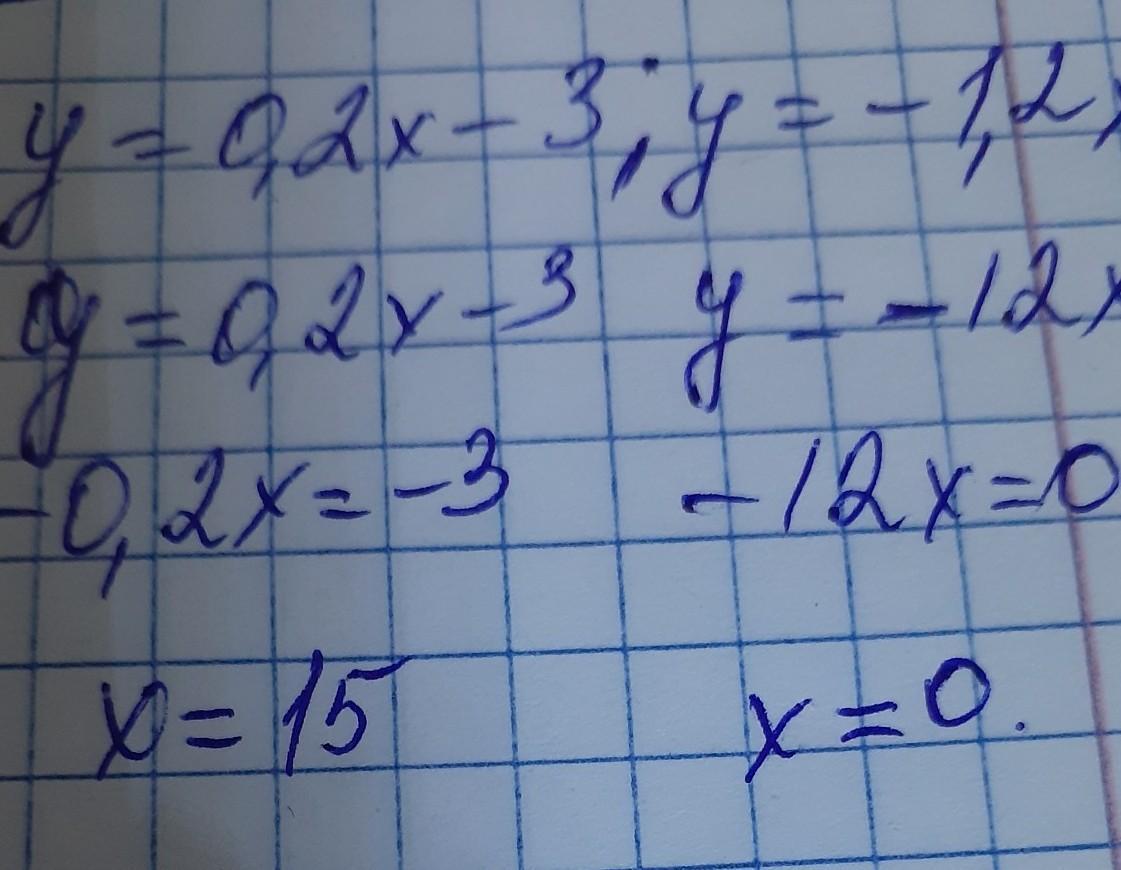 y = 0,2x - 3, y = -1,2x
y = 0,2x - 3 y = -12x
-0,2x = -3 -12x = 0
x = 15 x = 0.